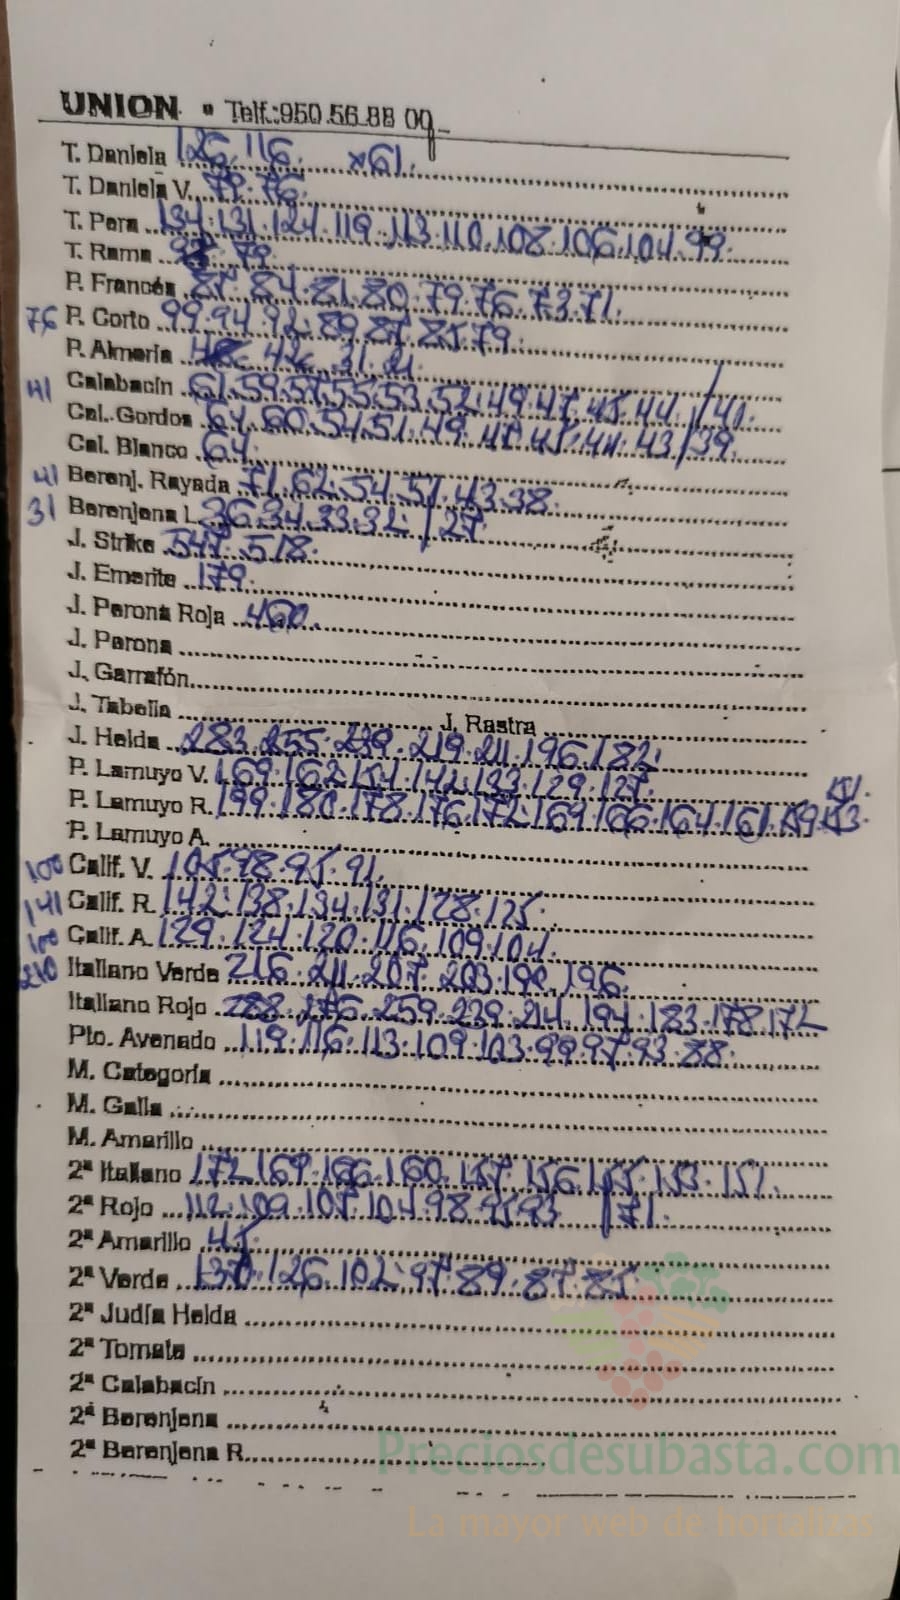 UNION • Telf.:950.56.88 09
T. Daniela 126. 116. x61.
T. Daniela V. 79. 76.
T. Pera 134. 131. 124. 119. 113. 110. 108. 106. 104. 99.
T. Rama 79.
P. Francés 87. 84. 81. 80. 79. 76. 73. 71.
76 P. Corto 99. 94. 92. 89. 87. 85. 79.
P. Almería 31. 21.
41 Calabacín 61. 59. 57. 55. 53. 52. 49. 47. 45. 44. / 41.
Cal. Gordos 64. 60. 54. 51. 49. 47. 45. 44. 43 / 39.
Cal. Blanco 64.
41 Berenj. Rayada 71. 62. 54. 51. 43. 38.
31 Berenjena L. 36. 34. 33. 32. / 27.
J. Strike 547. 518.
J. Emerite 179.
J. Perona Roja 460.
J. Perona
J. Garrafón
J. Tabella J. Rastra
J. Helda 283. 255. 239. 219. 211. 196. 182.
P. Lamuyo V. 169. 162. 154. 142. 133. 129. 127.
P. Lamuyo R. 199. 180. 178. 176. 172. 169. 166. 164. 161. 159. 153. 151.
P. Lamuyo A.
100 Calif. V. 105. 98. 95. 91.
141 Calif. R. 142. 138. 134. 131. 128. 125.
100 Calif. A. 129. 124. 120. 116. 109. 104.
210 Italiano Verde 216. 211. 207. 203. 199. 196.
Italiano Rojo 288. 276. 259. 239. 214. 194. 183. 178. 172
Pto. Avenado 119. 116. 113. 109. 103. 99. 97. 93. 88.
M. Categoría
M. Galia
M. Amarillo
2ª Italiano 172. 169. 166. 160. 157. 156. 155. 153. 151.
2ª Rojo 112. 109. 107. 104. 98. 95. 93 / 71.
2ª Amarillo 45.
2ª Verde 137. 126. 102. 97. 89. 87. 85
2ª Judía Helda
2ª Tomate
2ª Calabacín
2ª Berenjena
2ª Berenjena R.
Preciosdesubasta.com
La mayor web de hortalizas